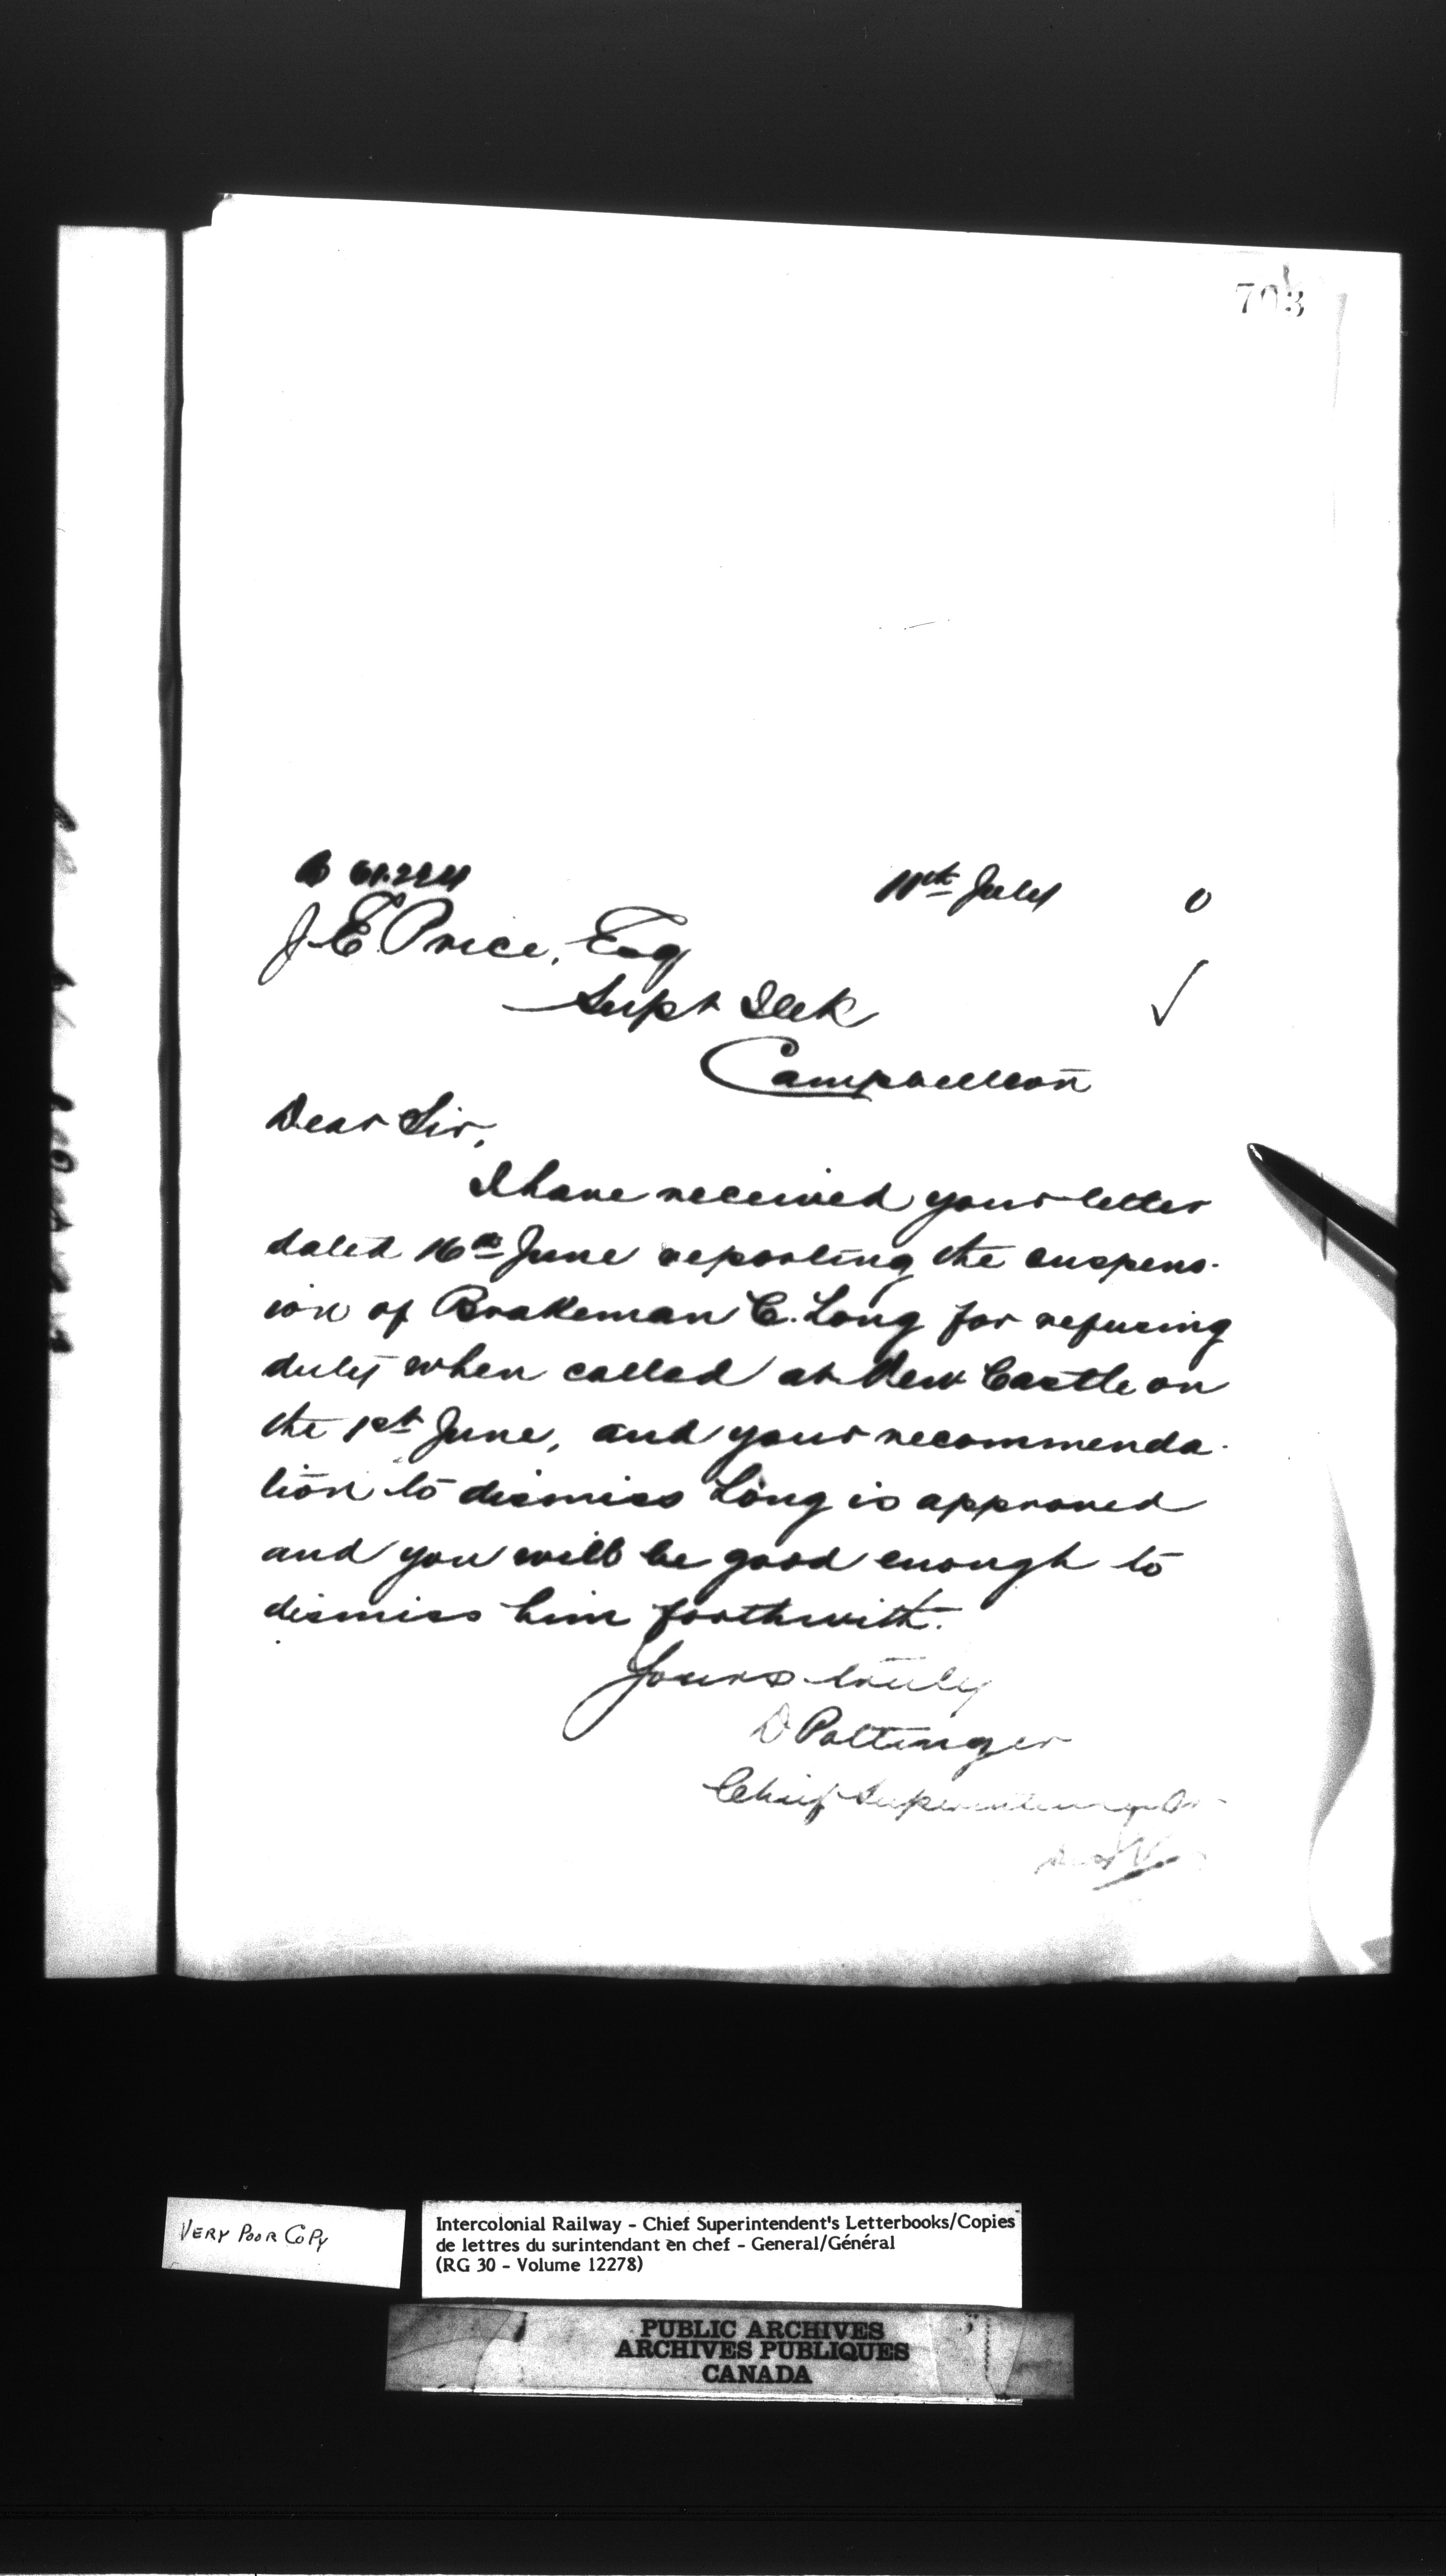 703
11th July 0
J. E. Price, Esq
Supt
Campbellton
Dear Sir,
I have received your letter
dated 16th June reporting the suspens-
ion of Brakeman C. Long for refusing
duty when called at New Castle on
the 1st June, and your recommenda-
tion to dismiss Long is approved
and you will be good enough to
dismiss him forthwith.
Yours truly
D Pottinger
Chief Superintendent
VERY POOR COPY
Intercolonial Railway - Chief Superintendent's Letterbooks/Copies
de lettres du surintendant en chef - General/Général
(RG 30 - Volume 12278)
PUBLIC ARCHIVES
ARCHIVES PUBLIQUES
CANADA